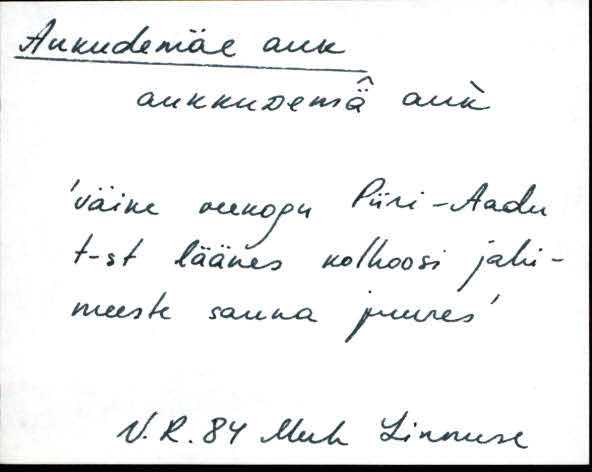 Aukudemäe auk
aukkuDemä̂ auk̀
'väike veekogu Piiri-Aadu
t-st läänes kolhoosi jahi-
meeste sauna juures'
V.R. 84 Linnuse